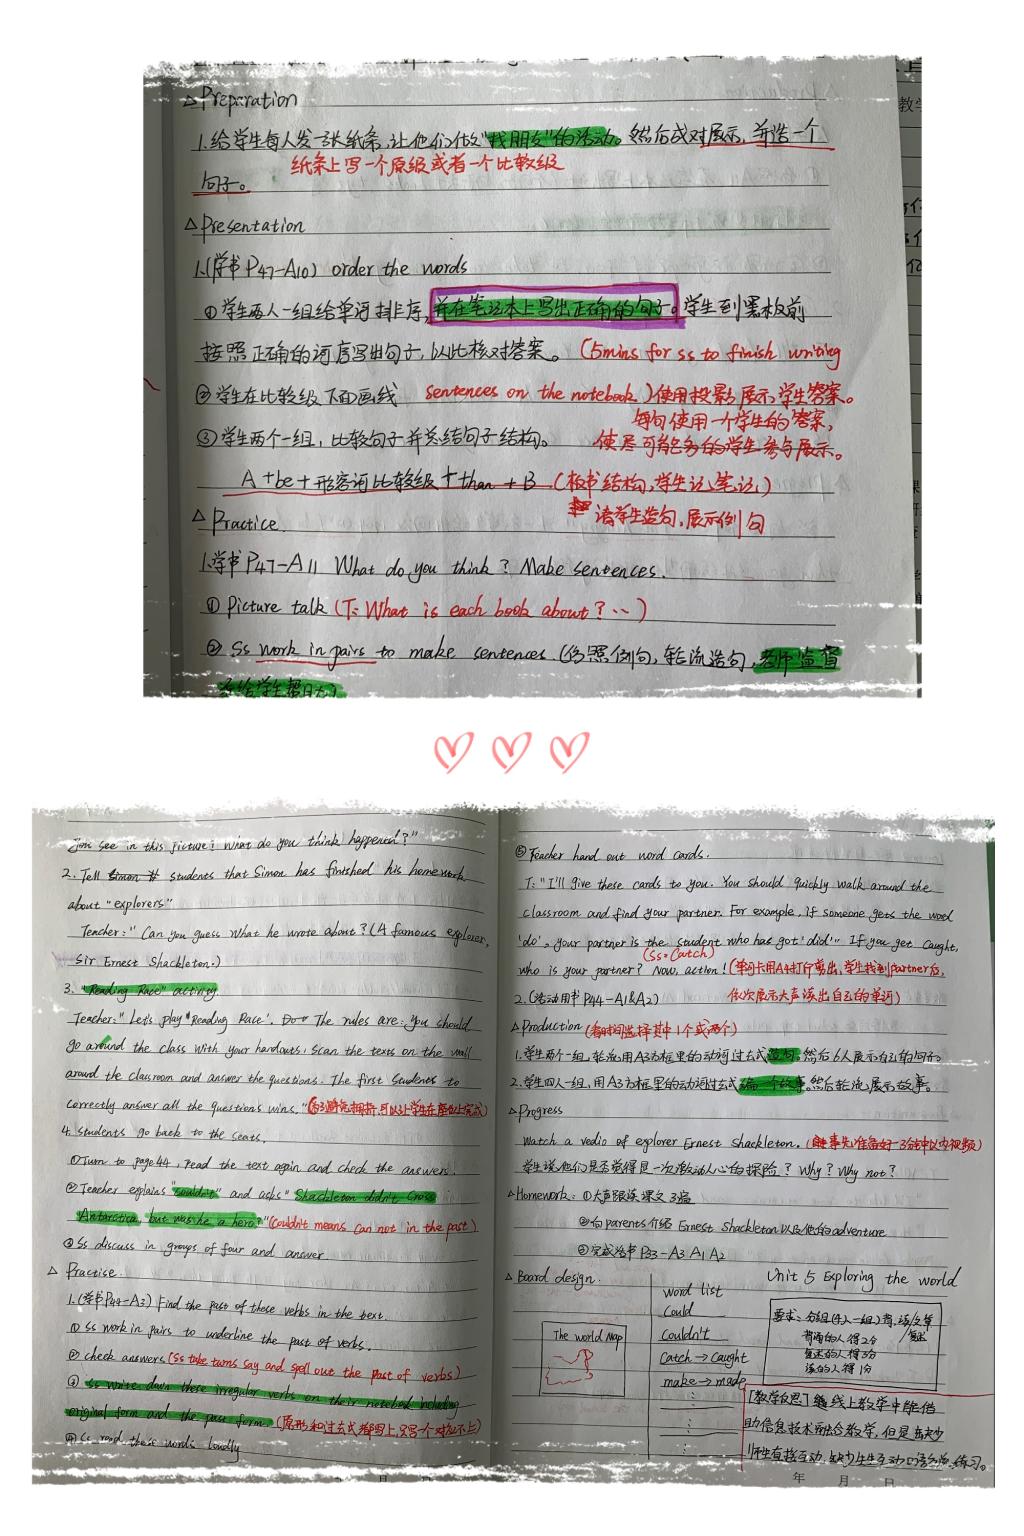 △Preparation
1.给学生每人发一张纸条,让他们做"找朋友"的活动。然后成对展示,并造一个
纸条上写一个原级或者一个比较级
句子。
△Presentation
1.(学书P47-A10) order the words
①学生两人一组给单词排序,并在笔记本上写出正确的句子。学生到黑板前
按照正确的词序写出句子,以此核对答案。(5mins for ss to finish writing
②学生在比较级下面画线 sentences on the notebook)使用投影展示学生答案。
每句使用一个学生的答案,
③学生两个一组,比较句子并总结句子结构。 使尽可能多的学生参与展示。
A+be+形容词比较级+than+B.(板书结构,学生记笔记)
△Practice. 请学生造句,展示例句
1.学书P47-A11 What do you think? Make sentences.
①Picture talk (T: What is each book about? ··)
②Ss work in pairs to make sentences.(仿照例句,轮流造句,老师监督
给学生帮助)
you see in this picture? What do you think happened?"
2. Tell students that Simon has finished his homework
about "explorers"
Teacher: "Can you guess what he wrote about? (A famous explorer,
Sir Ernest Shackleton.)
3. "Reading Race" activity.
Teacher: "Let's play 'Reading Race'. The rules are: You should
go around the class with your handouts. Scan the texts on the wall
around the classroom and answer the questions. The first students to
correctly answer all the questions wins." (为了避免拥挤,可以让学生在座位上完成)
4. Students go back to the seats.
①Turn to page 44, read the text again and check the answers.
②Teacher explains "couldn't" and asks "Shackleton didn't cross
Antarctica, but was he a hero?" (Couldn't means can not in the past)
③Ss discuss in groups of four and answer
△ Practise.
1.(学书P44-A3) Find the past of these verbs in the text.
①Ss work in pairs to underline the past of verbs.
②check answers (Ss take turns say and spell out the past of verbs)
③ss write down these irregular verbs on their notebook including
original form and the past form. (原形和过去式都写上,只写一个对应不上)
④Ss read these words loudly
⑤Teacher hand out word cards.
T: "I'll give these cards to you. You should quickly walk around the
classroom and find your partner. For example, if someone gets the word
'do', your partner is the student who has got 'did'. If you get caught,
(Ss: Catch)
who is your partner? Now, action! (单词卡用A4打印剪出,学生找到partner后,
2.(活动用书P44-A1&A2) 依次展示大声读出自己的单词)
△Production (看时间选择其中1个或两个)
1.学生两个一组,轮流用A3方框里的动词过去式造句,然后6人展示自己的句子。
2.学生四人一组,用A3方框里的动词过去式编一个故事,然后轮流展示故事。
△Progress
Watch a vedio of explorer Ernest Shackleton. (事先准备好一3分钟以内视频)
学生说他们是否觉得是一次激动人心的探险? Why? Why not?
△Homework: ①大声跟读课文3遍
②向parents介绍Ernest Shackleton以及他的adventure
③完成活书P33-A3 A1 A2
△Board design.
Unit 5 Exploring the world
The world Map
word list
Could
Couldn't
Catch→Caught
make→made
要求:分组(4人一组)背,读/文章
复述
背诵的人得2分
复述的人得3分
读的人得1分
[教学反思] 线上教学中能借
助信息技术融合教学,但是缺少
师生直接互动,缺少生生互动口语练习。
年 月 日